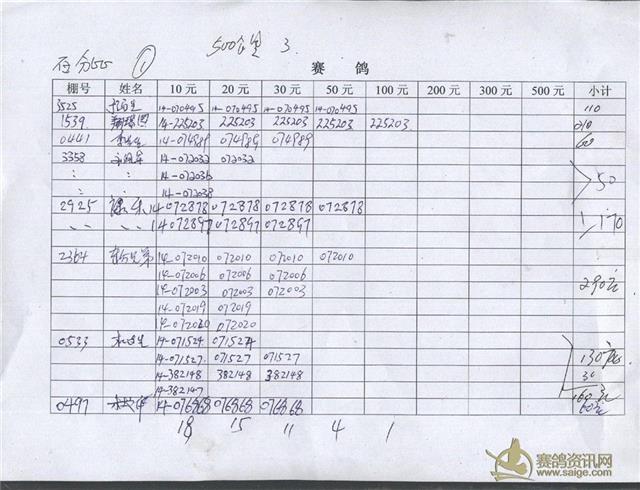 500公里 3
① 
赛 鸽
棚号 姓名 10 元 20 元 30 元 50 元 100 元 200 元 300 元 500 元 小计
3525 14-070495 14-070495 14-070495 14-070495 110
1539 14-225203 225203 225203 225203 225203 210
0441 14-074989 074989 074989 60
3358 14-072032 072032
14-072036 50
14-072038
2925 14072878 072878 072878 072878
14072897 072897 072897 170
2364 14-072010 072010 072010 072010
14-072006 072006 072006
14-072003 072003 072003 290元
14-072019 072019
14-072020 072020
0533 14-071524 071524
14-071527 071527 071527 130元
14-382148 382148 382148 30
14-382147 160元
0497 14-076868 076868 076868 60元
18 15 11 4 1
赛鸽资讯网
www.saige.com